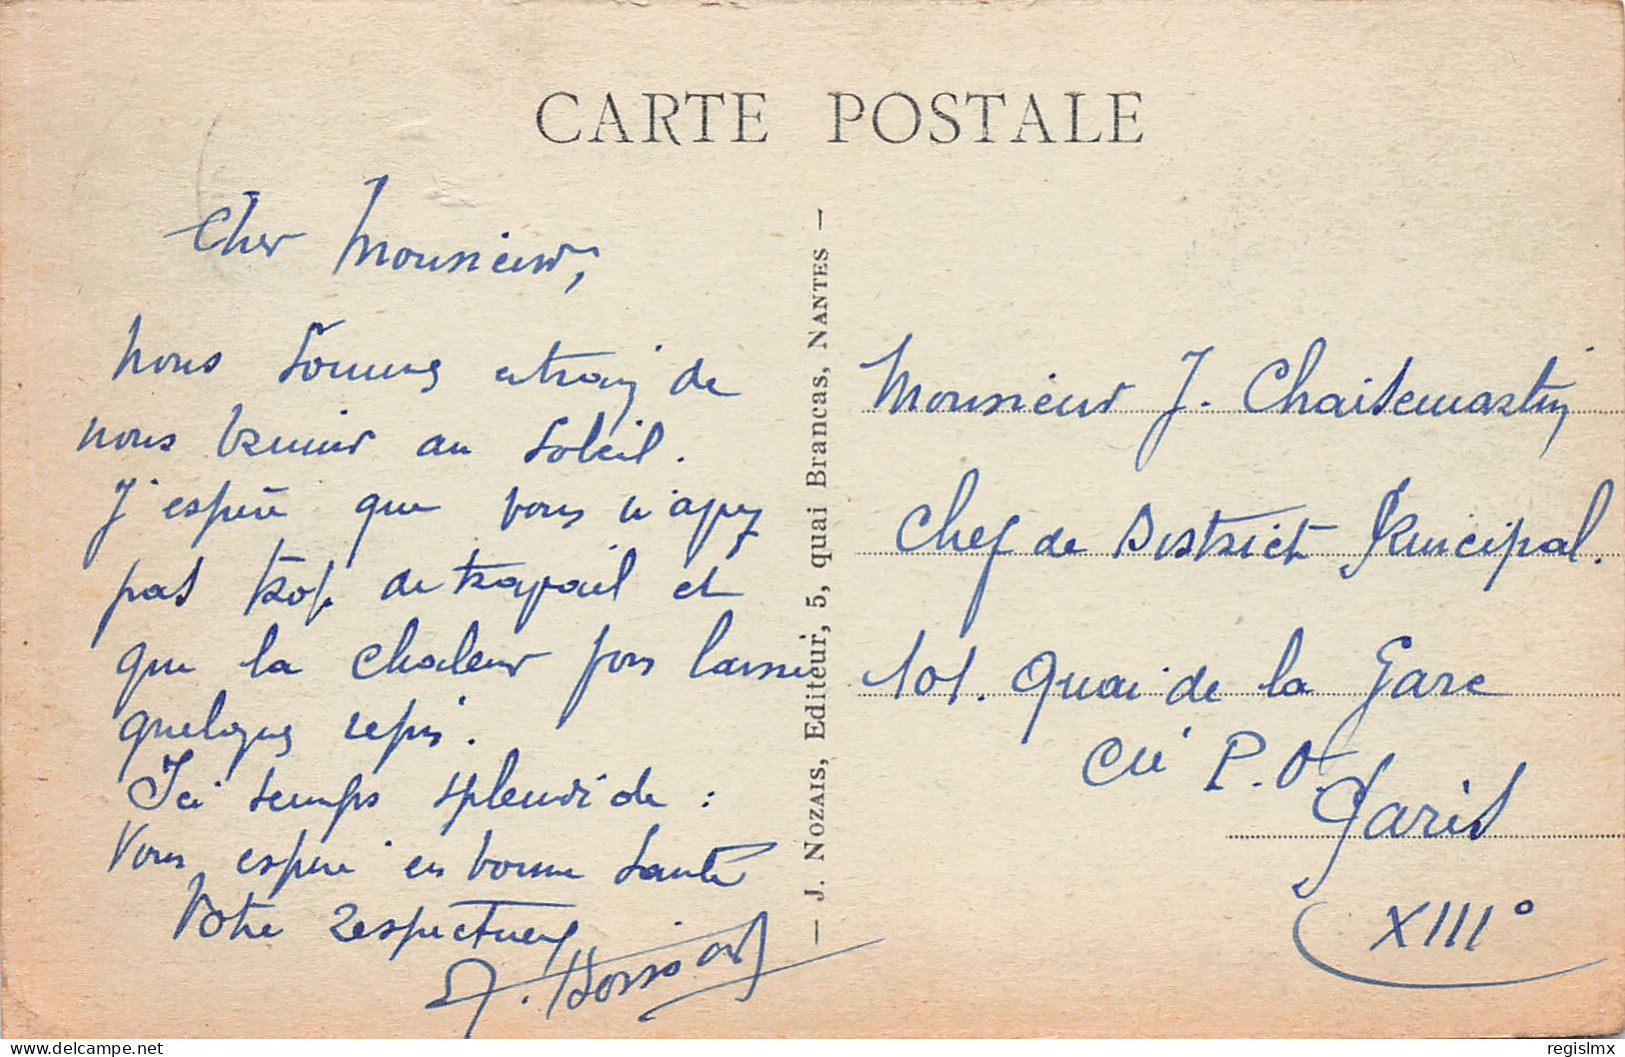 CARTE POSTALE
Cher Monsieur,
Nous sommes entrain de
nous brunir au soleil.
J'espère que vous n'avez
pas trop de travail et
que la chaleur vous laisse
quelques répis.
Ici temps splendide :
Vous espère en bonne santé
Votre respectueux
— J. NOZAIS, Editeur, 5, quai Brancas, NANTES —
Monsieur J. Chaisemartin
Chef de District Principal.
101. Quai de la Gare
Cie P.O.
Paris
XIII°
delcampe.net
regislmx